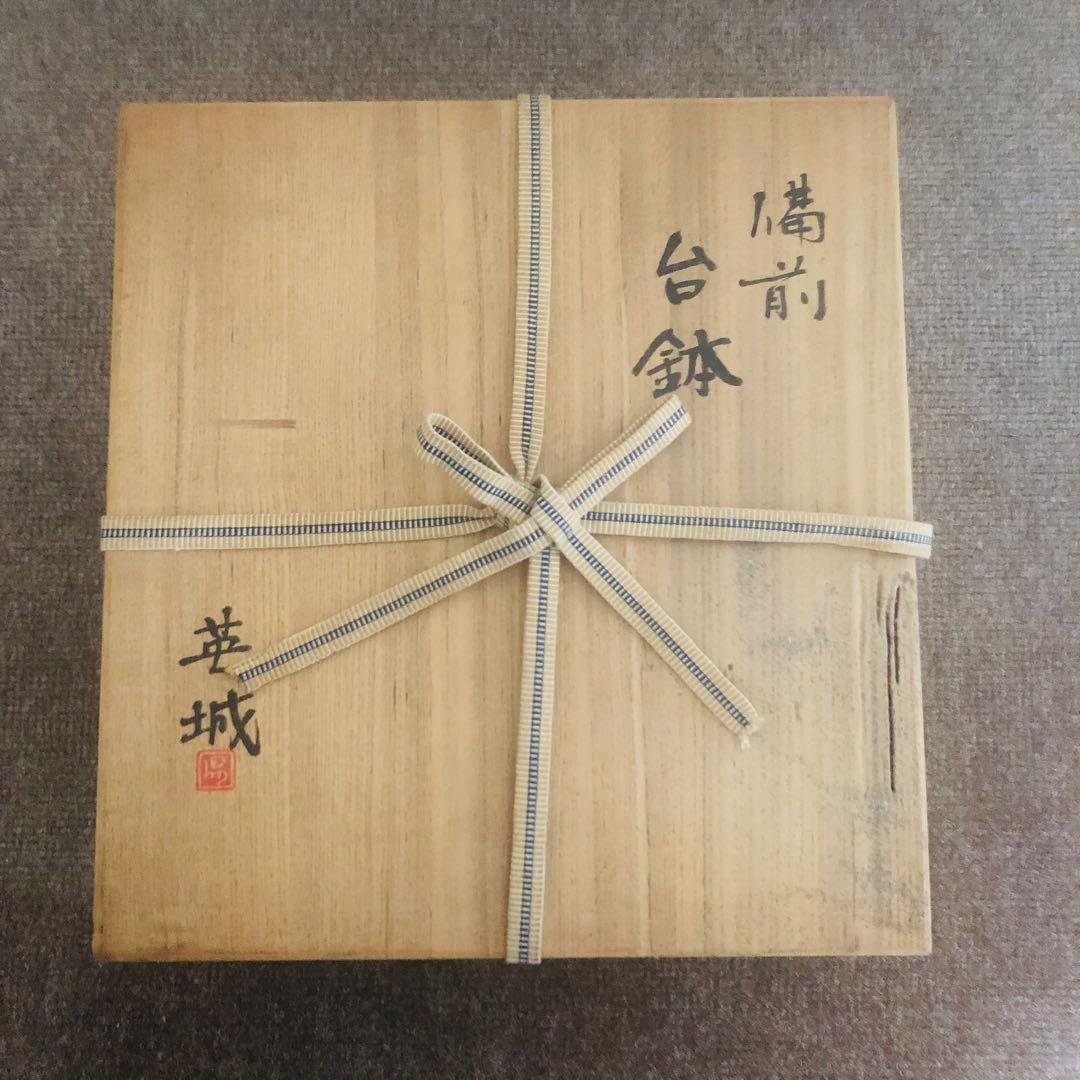 備前
台鉢
英城